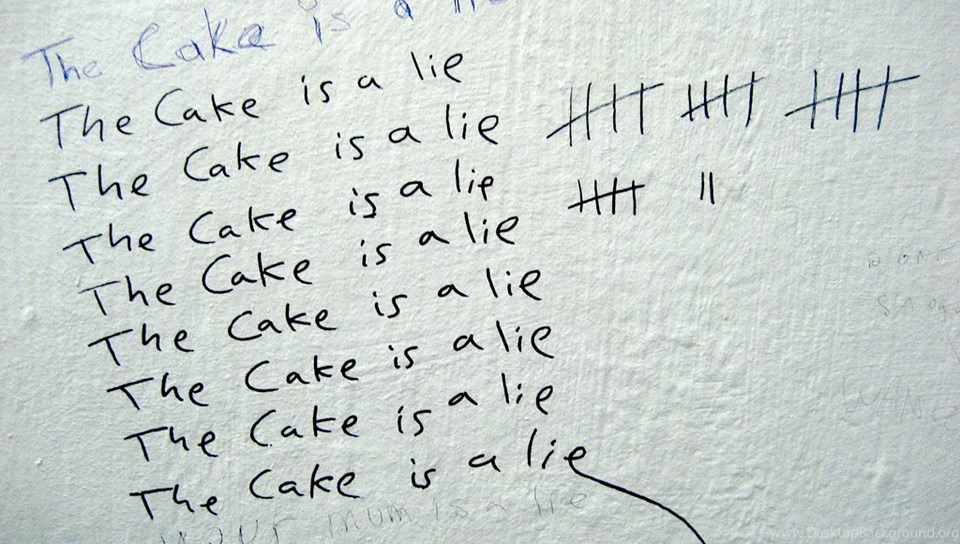 The Cake is a
The Cake is a lie
The Cake is a lie
The Cake is a lie
The Cake is a lie
The Cake is a lie
The Cake is a lie
The Cake is a lie
The Cake is a lie
your mum is a lie
www.DesktopBackground.org